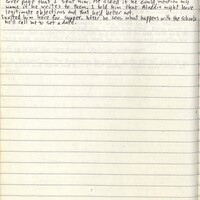 over page that I sent him. He asked if he could mention my
name if he writes to them, I told him that Aladdin might have
legitimate objections and that he'd better not.
Invited him here for supper. After he sees what happens with the schools
he'll call me to set a date.